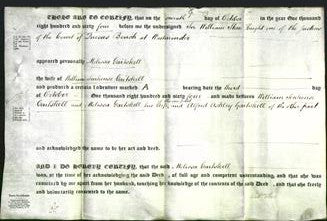 THESE ARE TO CERTIFY, that on the seventh day of October in the year One thousand eight hundred and sixty four before me the undersigned Sir William Shee Knight one of the Justices
of the Court of Queens Bench at Westminster
appeared personally Melissa Gartskell
the wife of William Lawrence Gartskell
and produced a certain Indenture marked A bearing date the third day
of October One thousand eight hundred and sixty four and made between William Lawrence
Gartskell and Melissa Gartskell his wife of the first part and Alfred Ashley Gartskell of the other part
AND I DO HEREBY CERTIFY, that the said Melissa Gartskell
was, at the time of her acknowledging the said Deed, of full age and competent understanding, and that she was
examined by me apart from her husband, touching her knowledge of the contents of the said Deed, and that she freely
and voluntarily consented to the same.